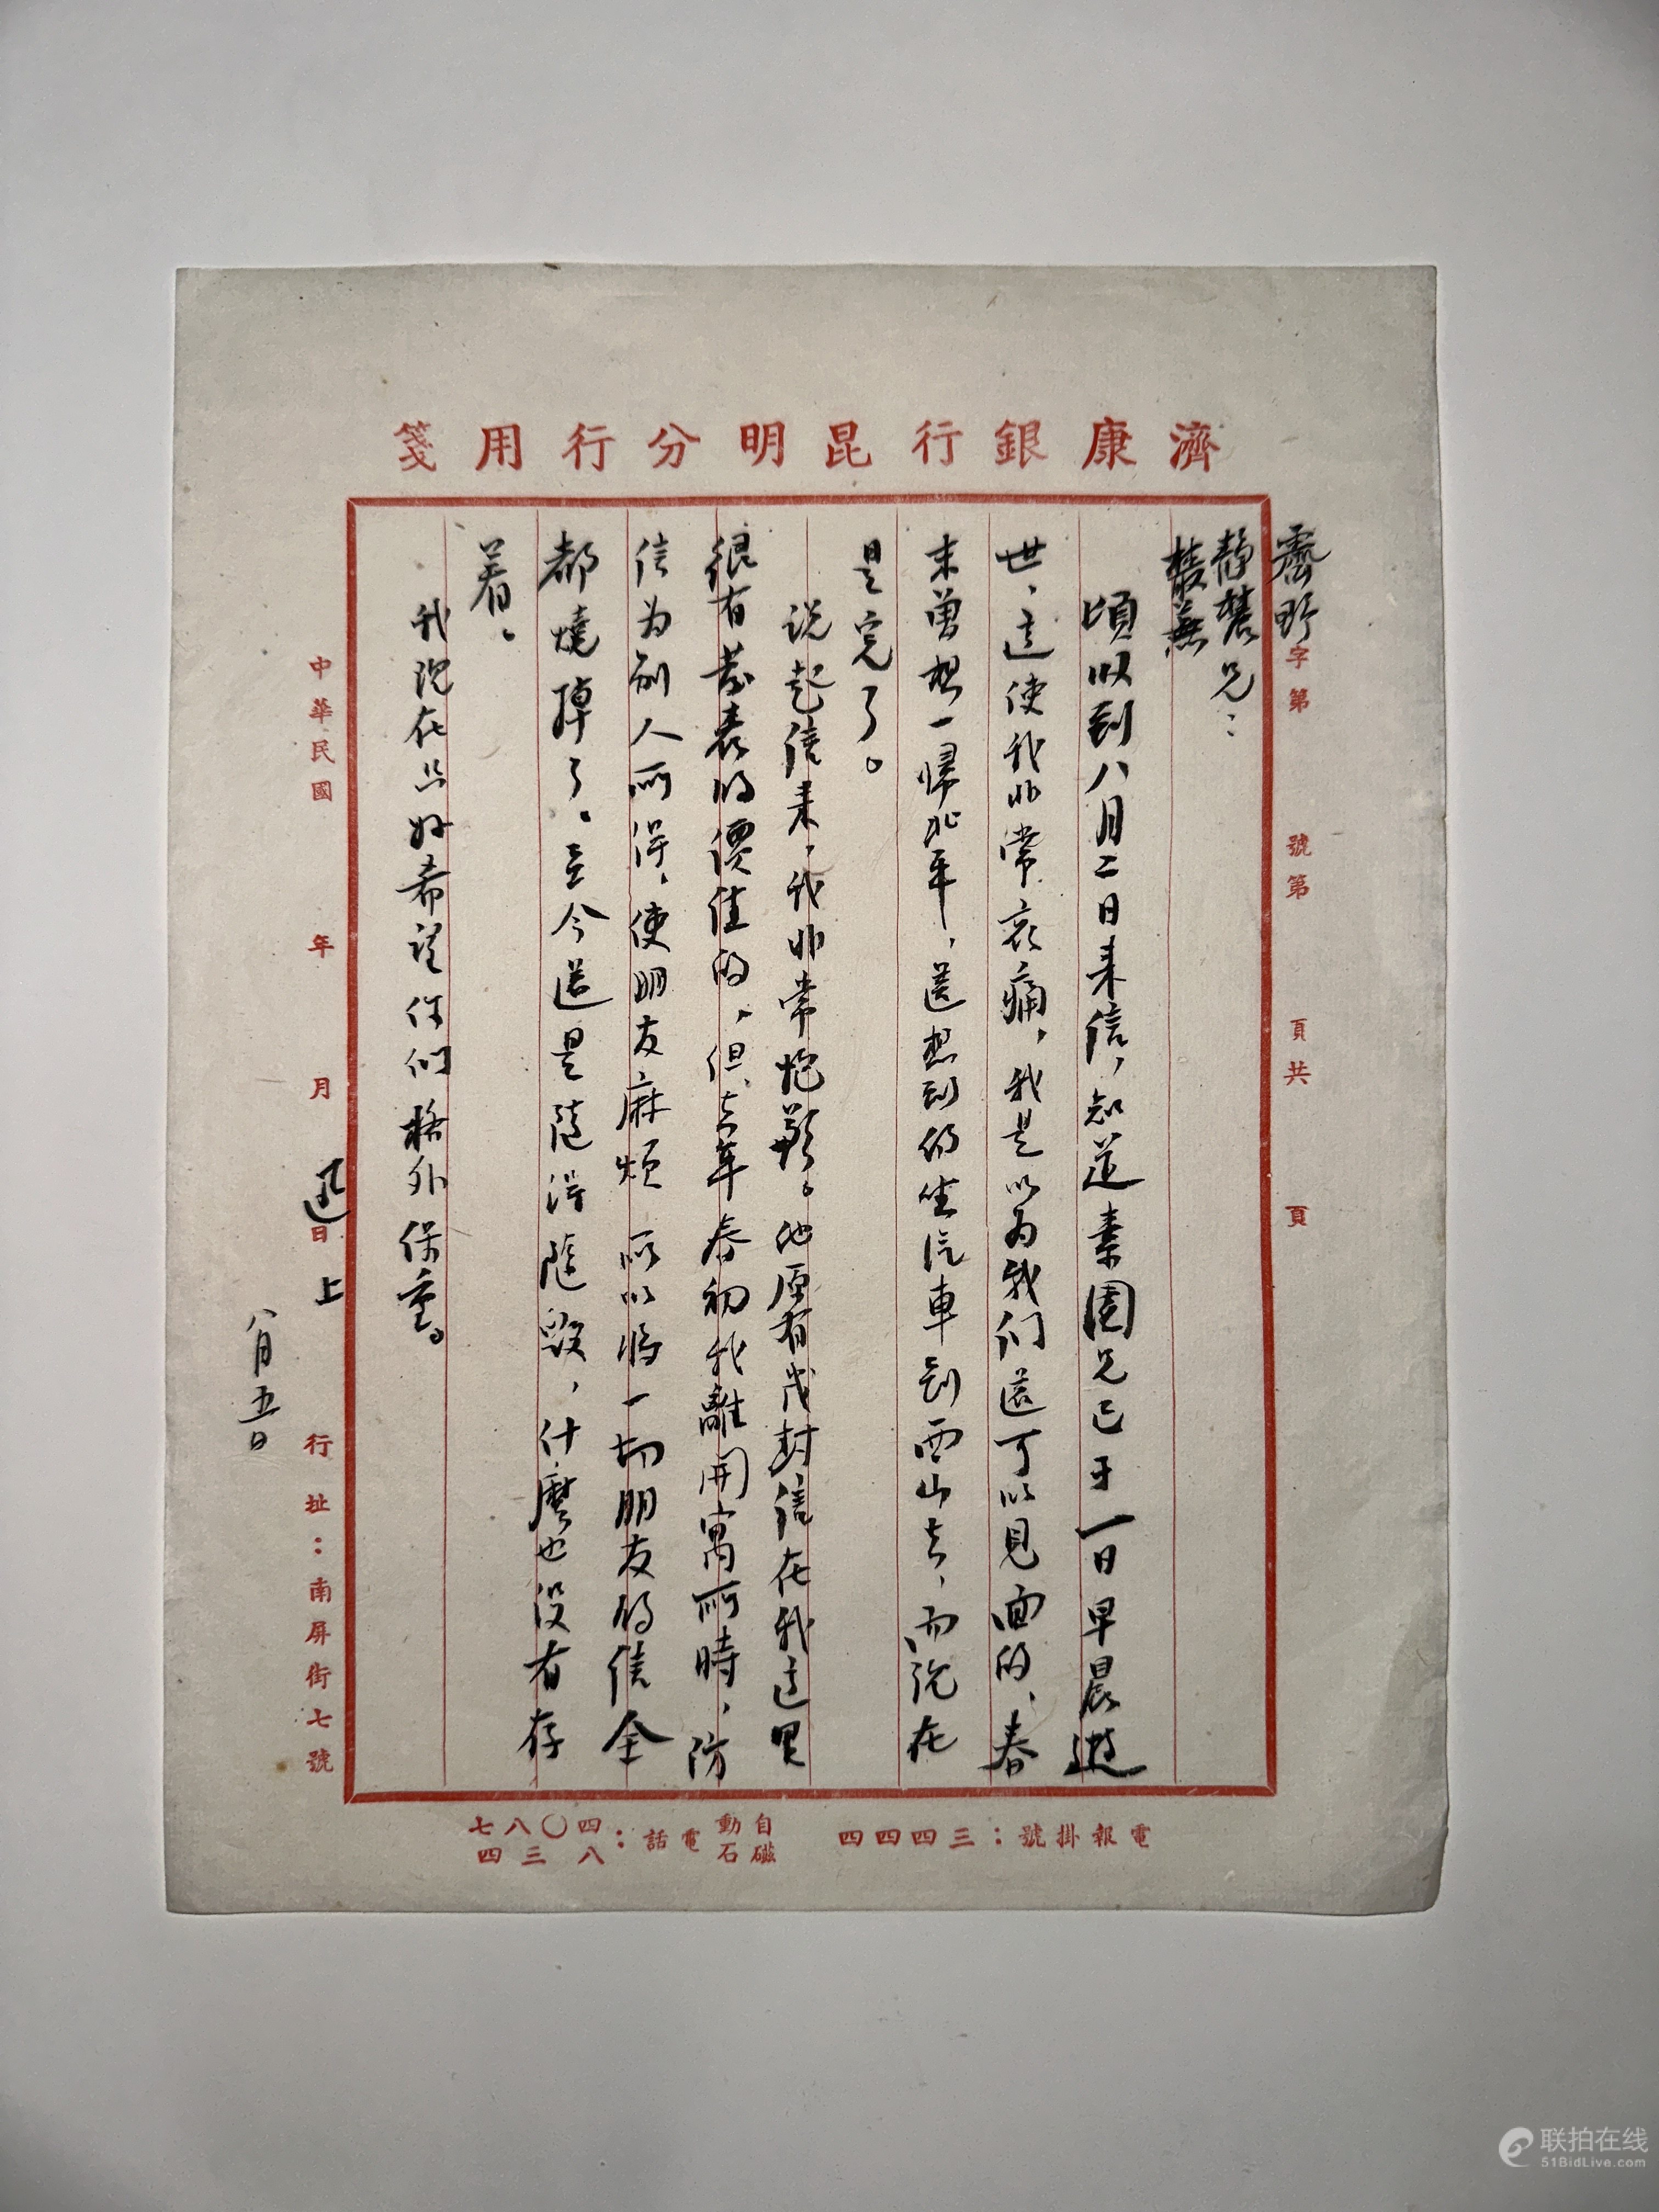 濟康銀行昆明分行用箋
字第　號第　頁共　頁
霽野
靜農兄：
叢蕪
頃收到八月二日来信，知道素園兄已于一日早晨逝
世，这使我非常哀痛，我是以为我们还可以見面的，春
末曾想一歸北平，還想到的坐汽車到西山去，而現在
是完了。
说起信来，我非常抱歉。他原有幾封信在我这里
很有發表的價值的，但去年春初我離開寓所時，防
信为别人所得，使朋友麻烦，所以将一切朋友的信全
都燒掉了。至今還是隨得隨毀，什麽也没有存
着。
我现在尚好希望你们格外保重。
迅 上
八月五日
中華民國　年　月　日　行址：南屏街七號
電報掛號：三四四四
自動電話：四〇八七
磁石電話：八三四
联拍在线
51BidLive.com